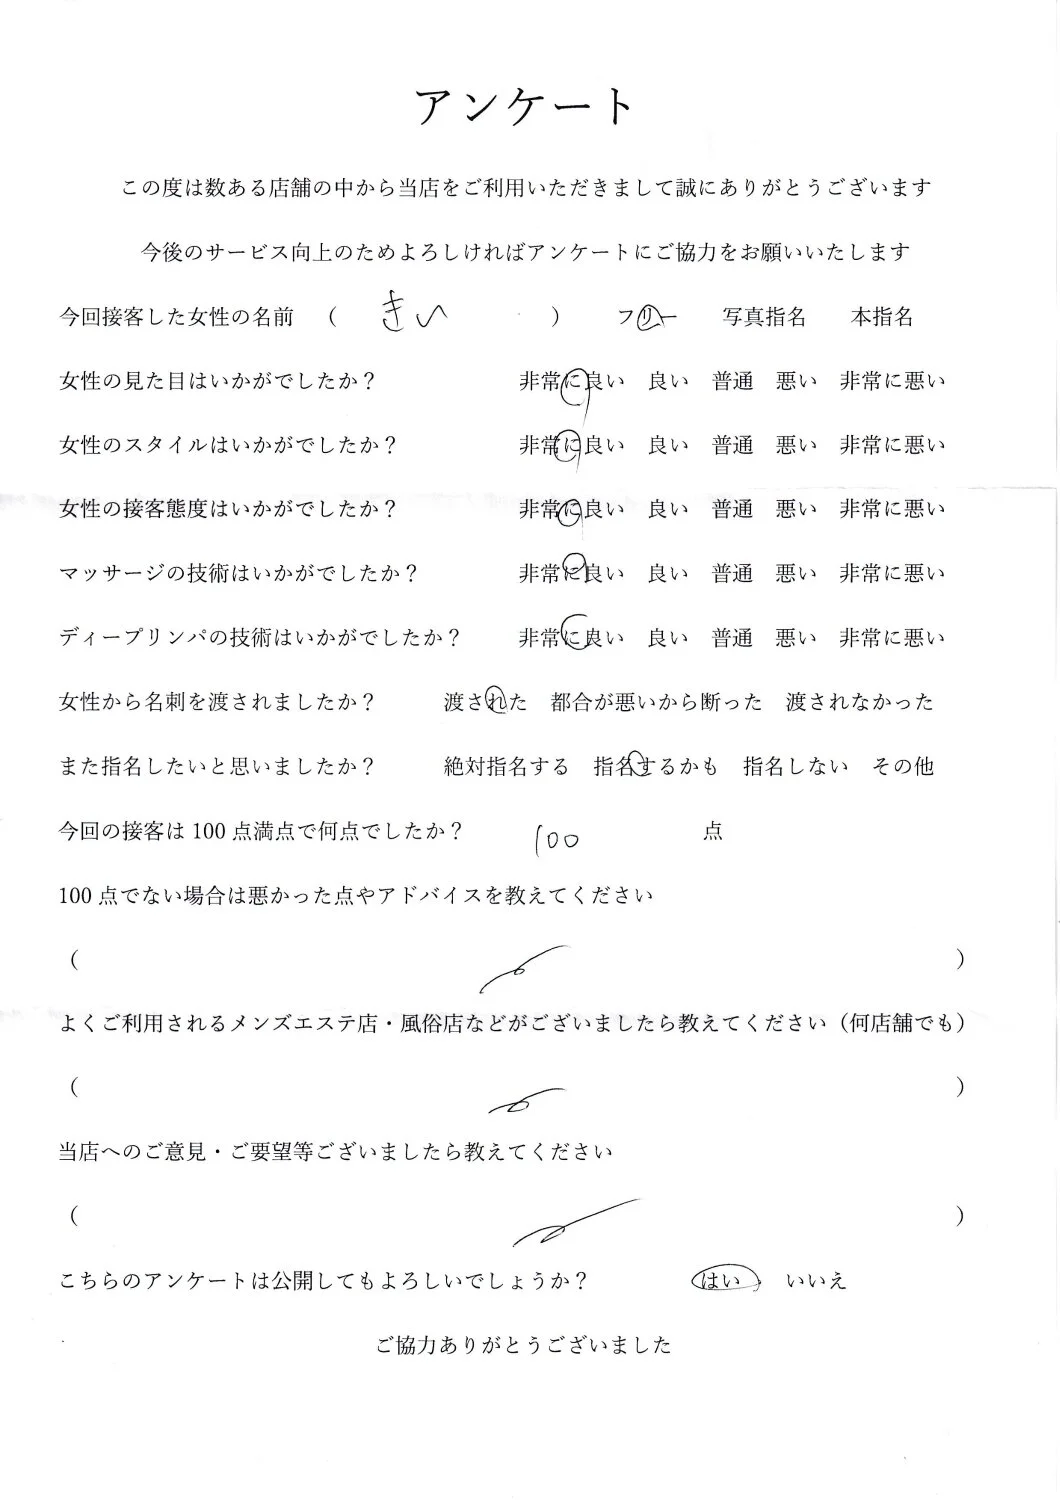 アンケート
この度は数ある店舗の中から当店をご利用いただきまして誠にありがとうございます
今後のサービス向上のためよろしければアンケートにご協力をお願いいたします
今回接客した女性の名前 （ きい ） フリー 写真指名 本指名
女性の見た目はいかがでしたか？ 非常に良い 良い 普通 悪い 非常に悪い
女性のスタイルはいかがでしたか？ 非常に良い 良い 普通 悪い 非常に悪い
女性の接客態度はいかがでしたか？ 非常に良い 良い 普通 悪い 非常に悪い
マッサージの技術はいかがでしたか？ 非常に良い 良い 普通 悪い 非常に悪い
ディープリンパの技術はいかがでしたか？ 非常に良い 良い 普通 悪い 非常に悪い
女性から名刺を渡されましたか？ 渡された 都合が悪いから断った 渡されなかった
また指名したいと思いましたか？ 絶対指名する 指名するかも 指名しない その他
今回の接客は 100 点満点で何点でしたか？ 100 点
100 点でない場合は悪かった点やアドバイスを教えてください
（ ）
よくご利用されるメンズエステ店・風俗店などがございましたら教えてください（何店舗でも）
（ ）
当店へのご意見・ご要望等ございましたら教えてください
（ ）
こちらのアンケートは公開してもよろしいでしょうか？ はい ・ いいえ
ご協力ありがとうございました